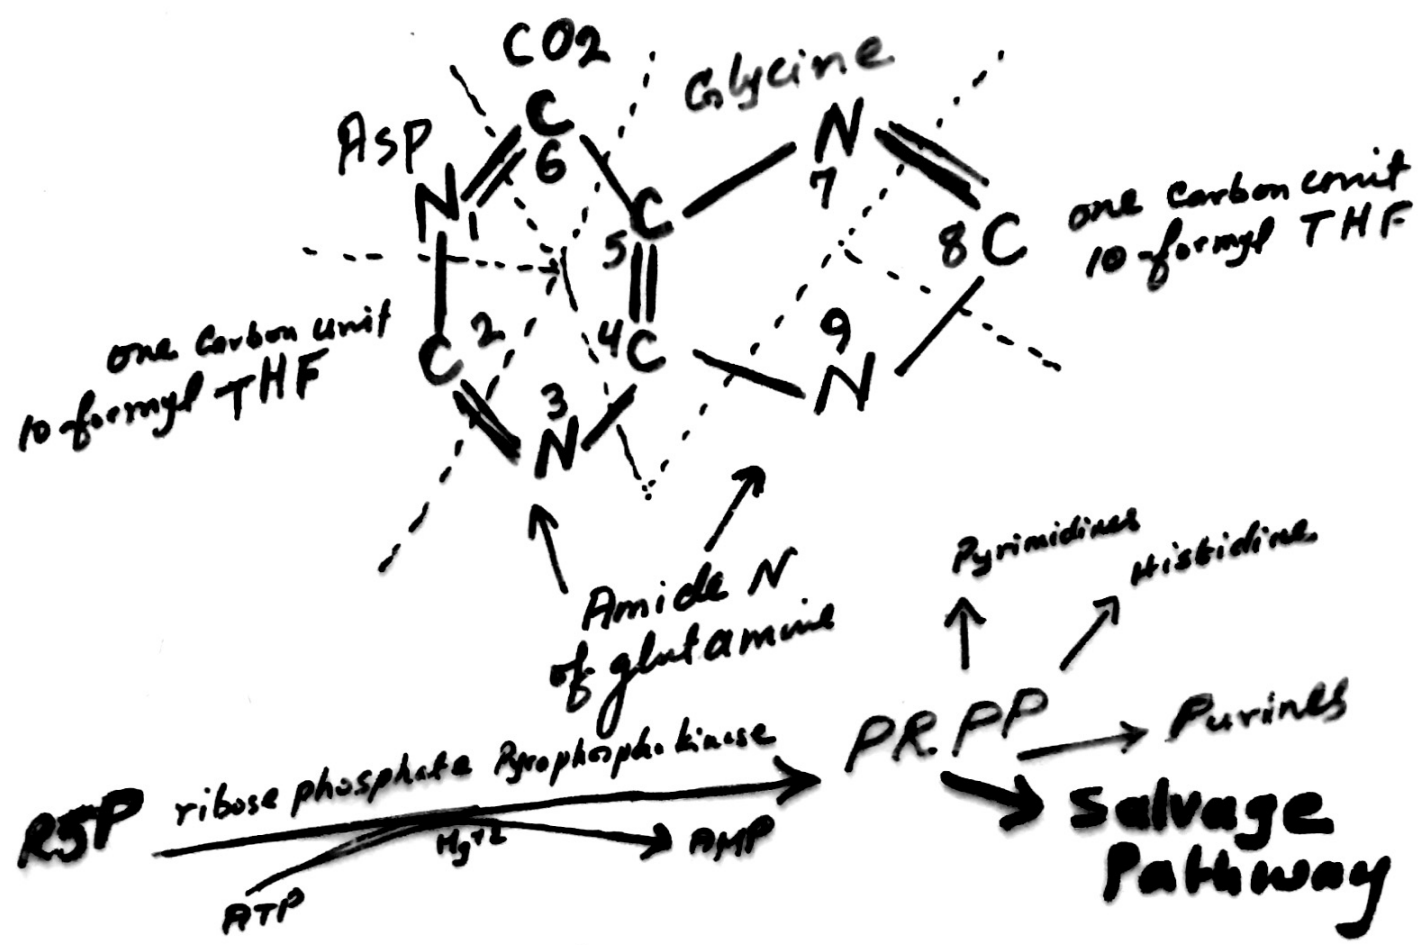 CO2
Glycine
Asp
C
6
N
7
N
1
C
5
8 C
one carbon unit
10-formyl THF
one carbon unit
10-formyl THF
C
2
4 C
9
N
3
N
Amide N
of glutamine
Pyrimidines
Histidine
PRPP
Purines
Salvage
Pathway
R5P
ribose phosphate Pyrophosphokinase
Mg+2
ATP
AMP